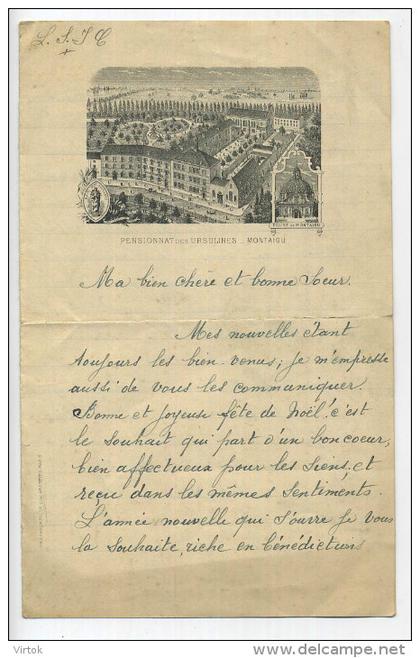 L. S. J. C
+
EGLISE DE MONTAIGU
PENSIONNAT DES URSULINES _ MONTAIGU
Ma bien chère et bonne Soeur.
Mes nouvelles étant
toujours les bien-venus; je m'empresse
aussi de vous les communiquer.
Bonne et joyeuse fête de Noël! c'est
le souhait qui part d'un bon coeur,
bien affectueux pour les siens, et
reçu dans les mêmes sentiments.
L'année nouvelle qui s'ouvre je vous
la souhaite, riche en bénédictions
© Virtok
www.delcampe.net